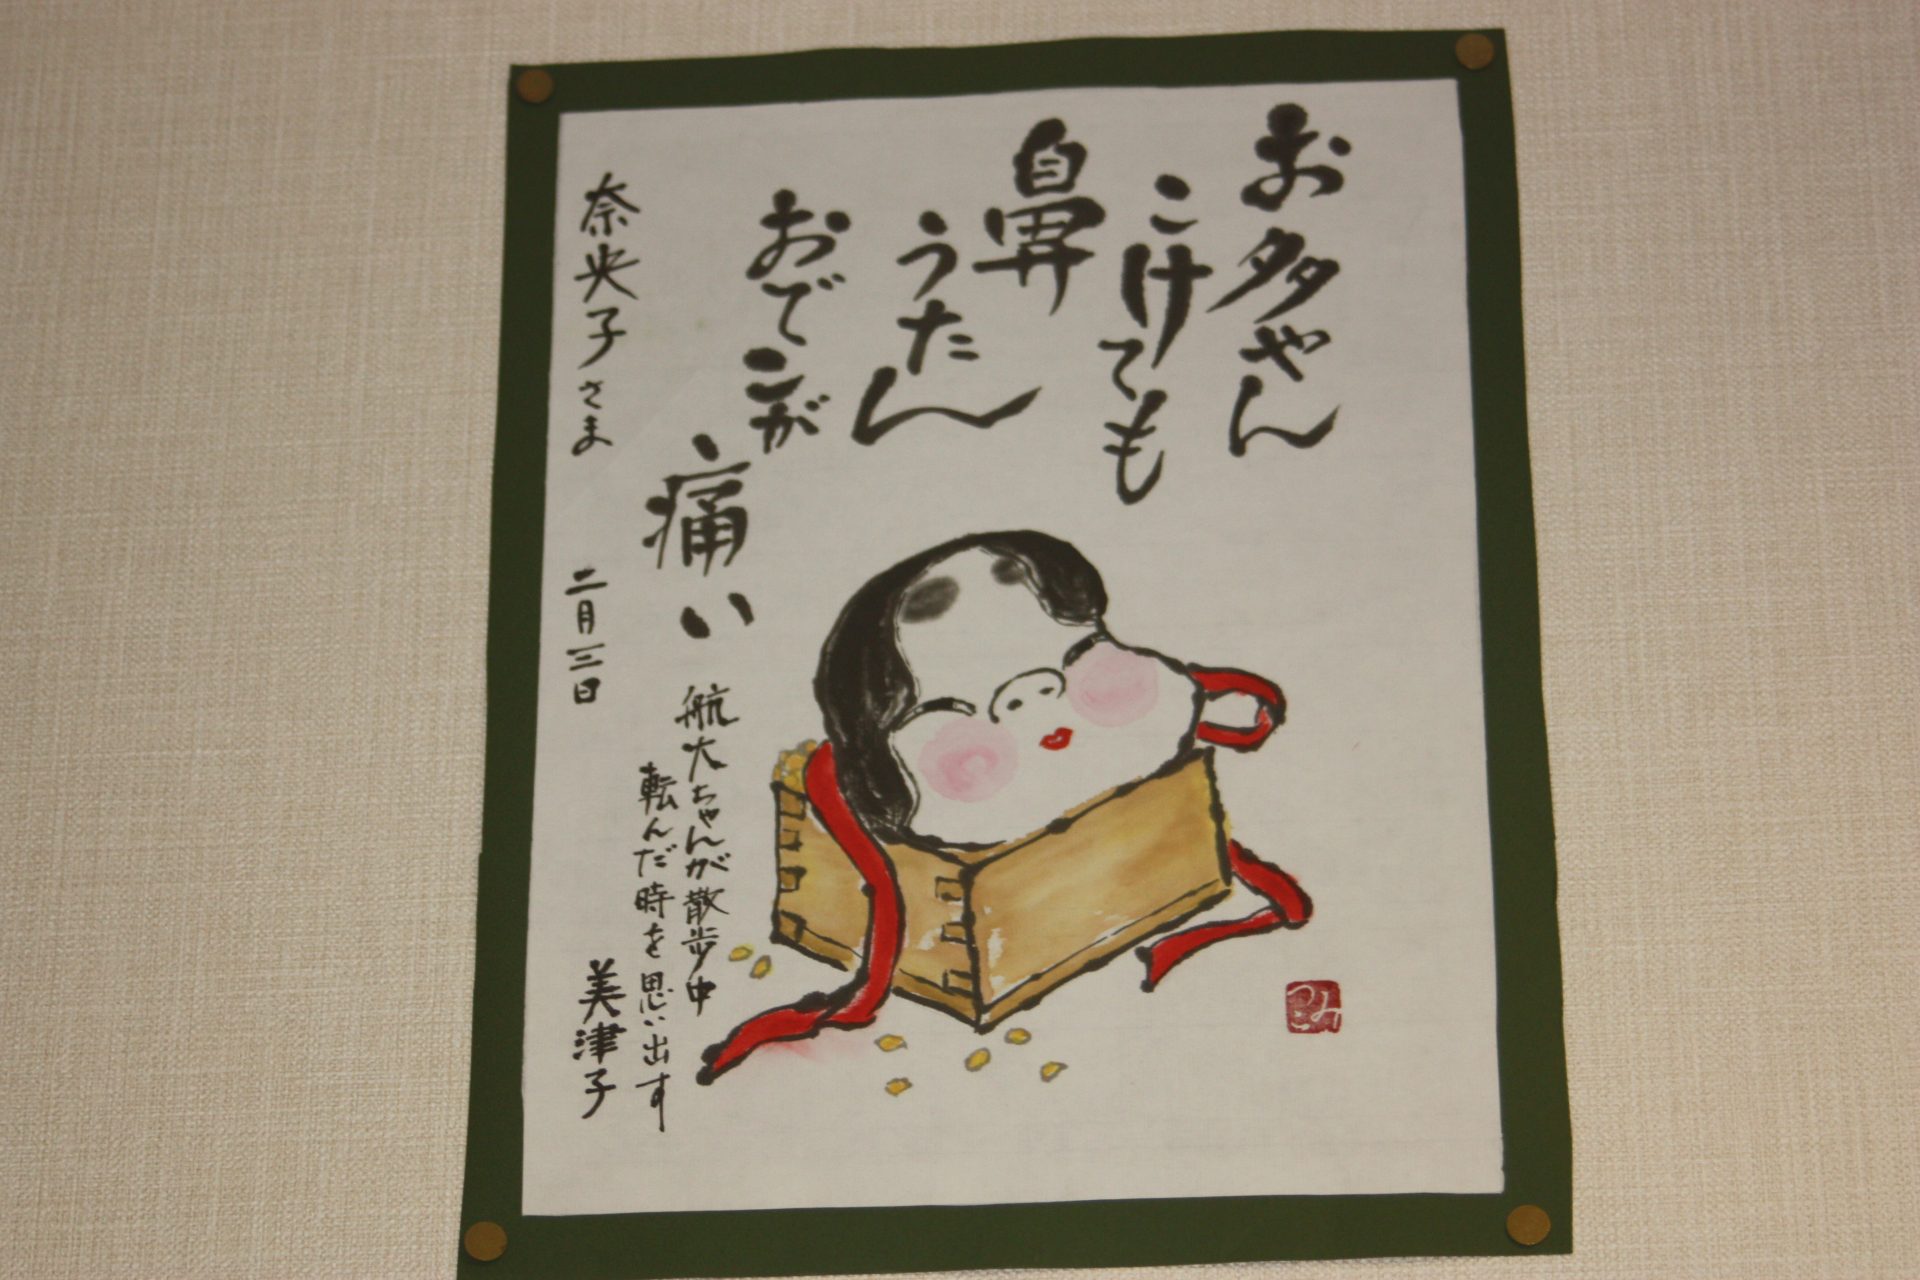 お多やん
こけても
鼻
うたん
おでこが
痛い
航大ちゃんが散歩中
転んだ時を思い出す
奈央子さま
二月三日
美津子
みつこ